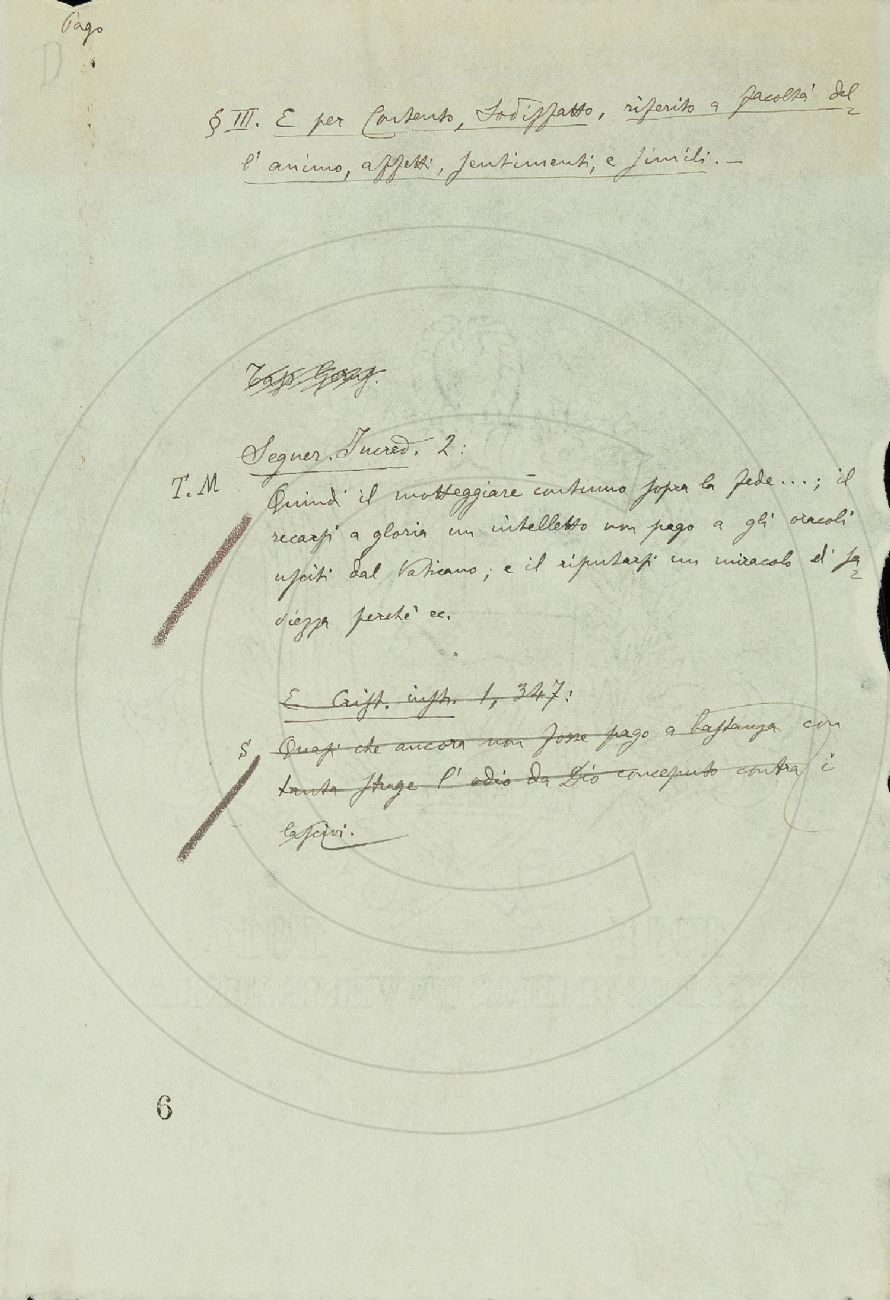 Pago
D
§ III. E per Contento, Sodisfatto, riferito a facoltà del-
l'animo, affetti, sentimenti, e simili. —
Segner. Incred. 2:
T. M Quindi il motteggiare continuo sopra la fede...; il
recarsi a gloria un intelletto non pago a gli oracoli
usciti dal Vaticano; e il riputarsi un miracolo di sa-
viezza perchè ec.
E Crist. instr. 1, 347:
S Quasi che ancora non fosse pago a bastanza con
tanta strage l'odio da Dio conceputo contra i
lascivi.
6